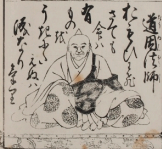 道因法師
おもひわひ
さても
命は
有
ものを
うきにた
えぬは
涙なり
けり